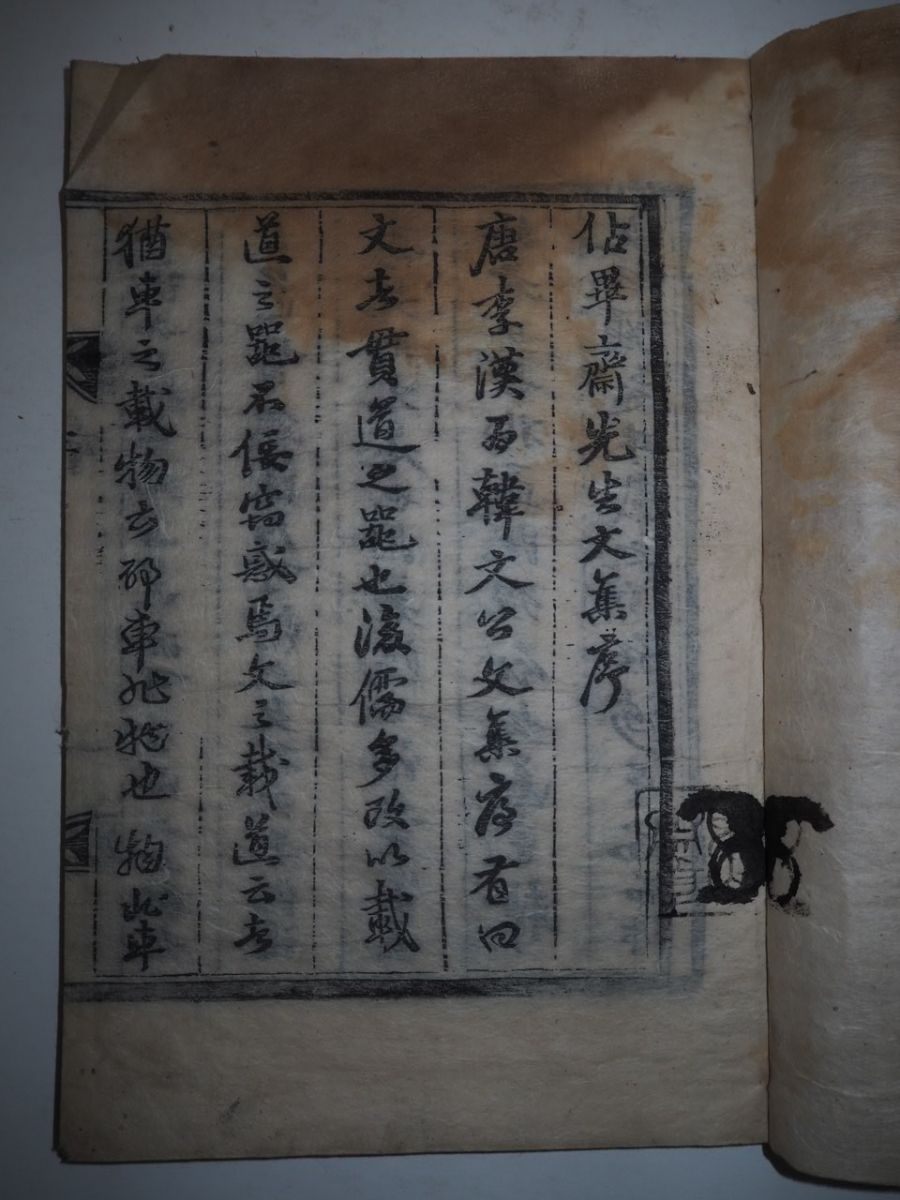 佔畢齋先生文集序
唐李漢為韓文公文集序有曰
文者貫道之器也後儒多改以載
道之器不佞竊惑焉文之載道云者
猶車之載物云耶車非物也物非車